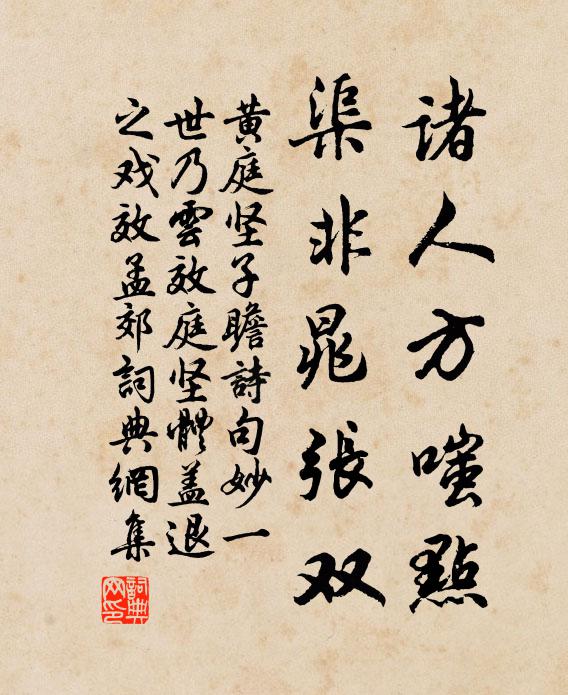 诸人方嗤點
渠非晁張双
黄庭坚子瞻詩句妙一
世乃雲效庭坚體盖退
之戏效孟郊詞典網集
詞典網印